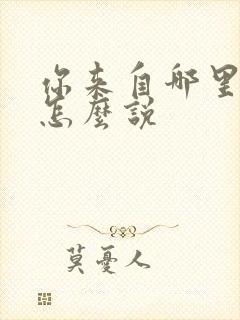 你来自哪里
怎麼説
莫憂人